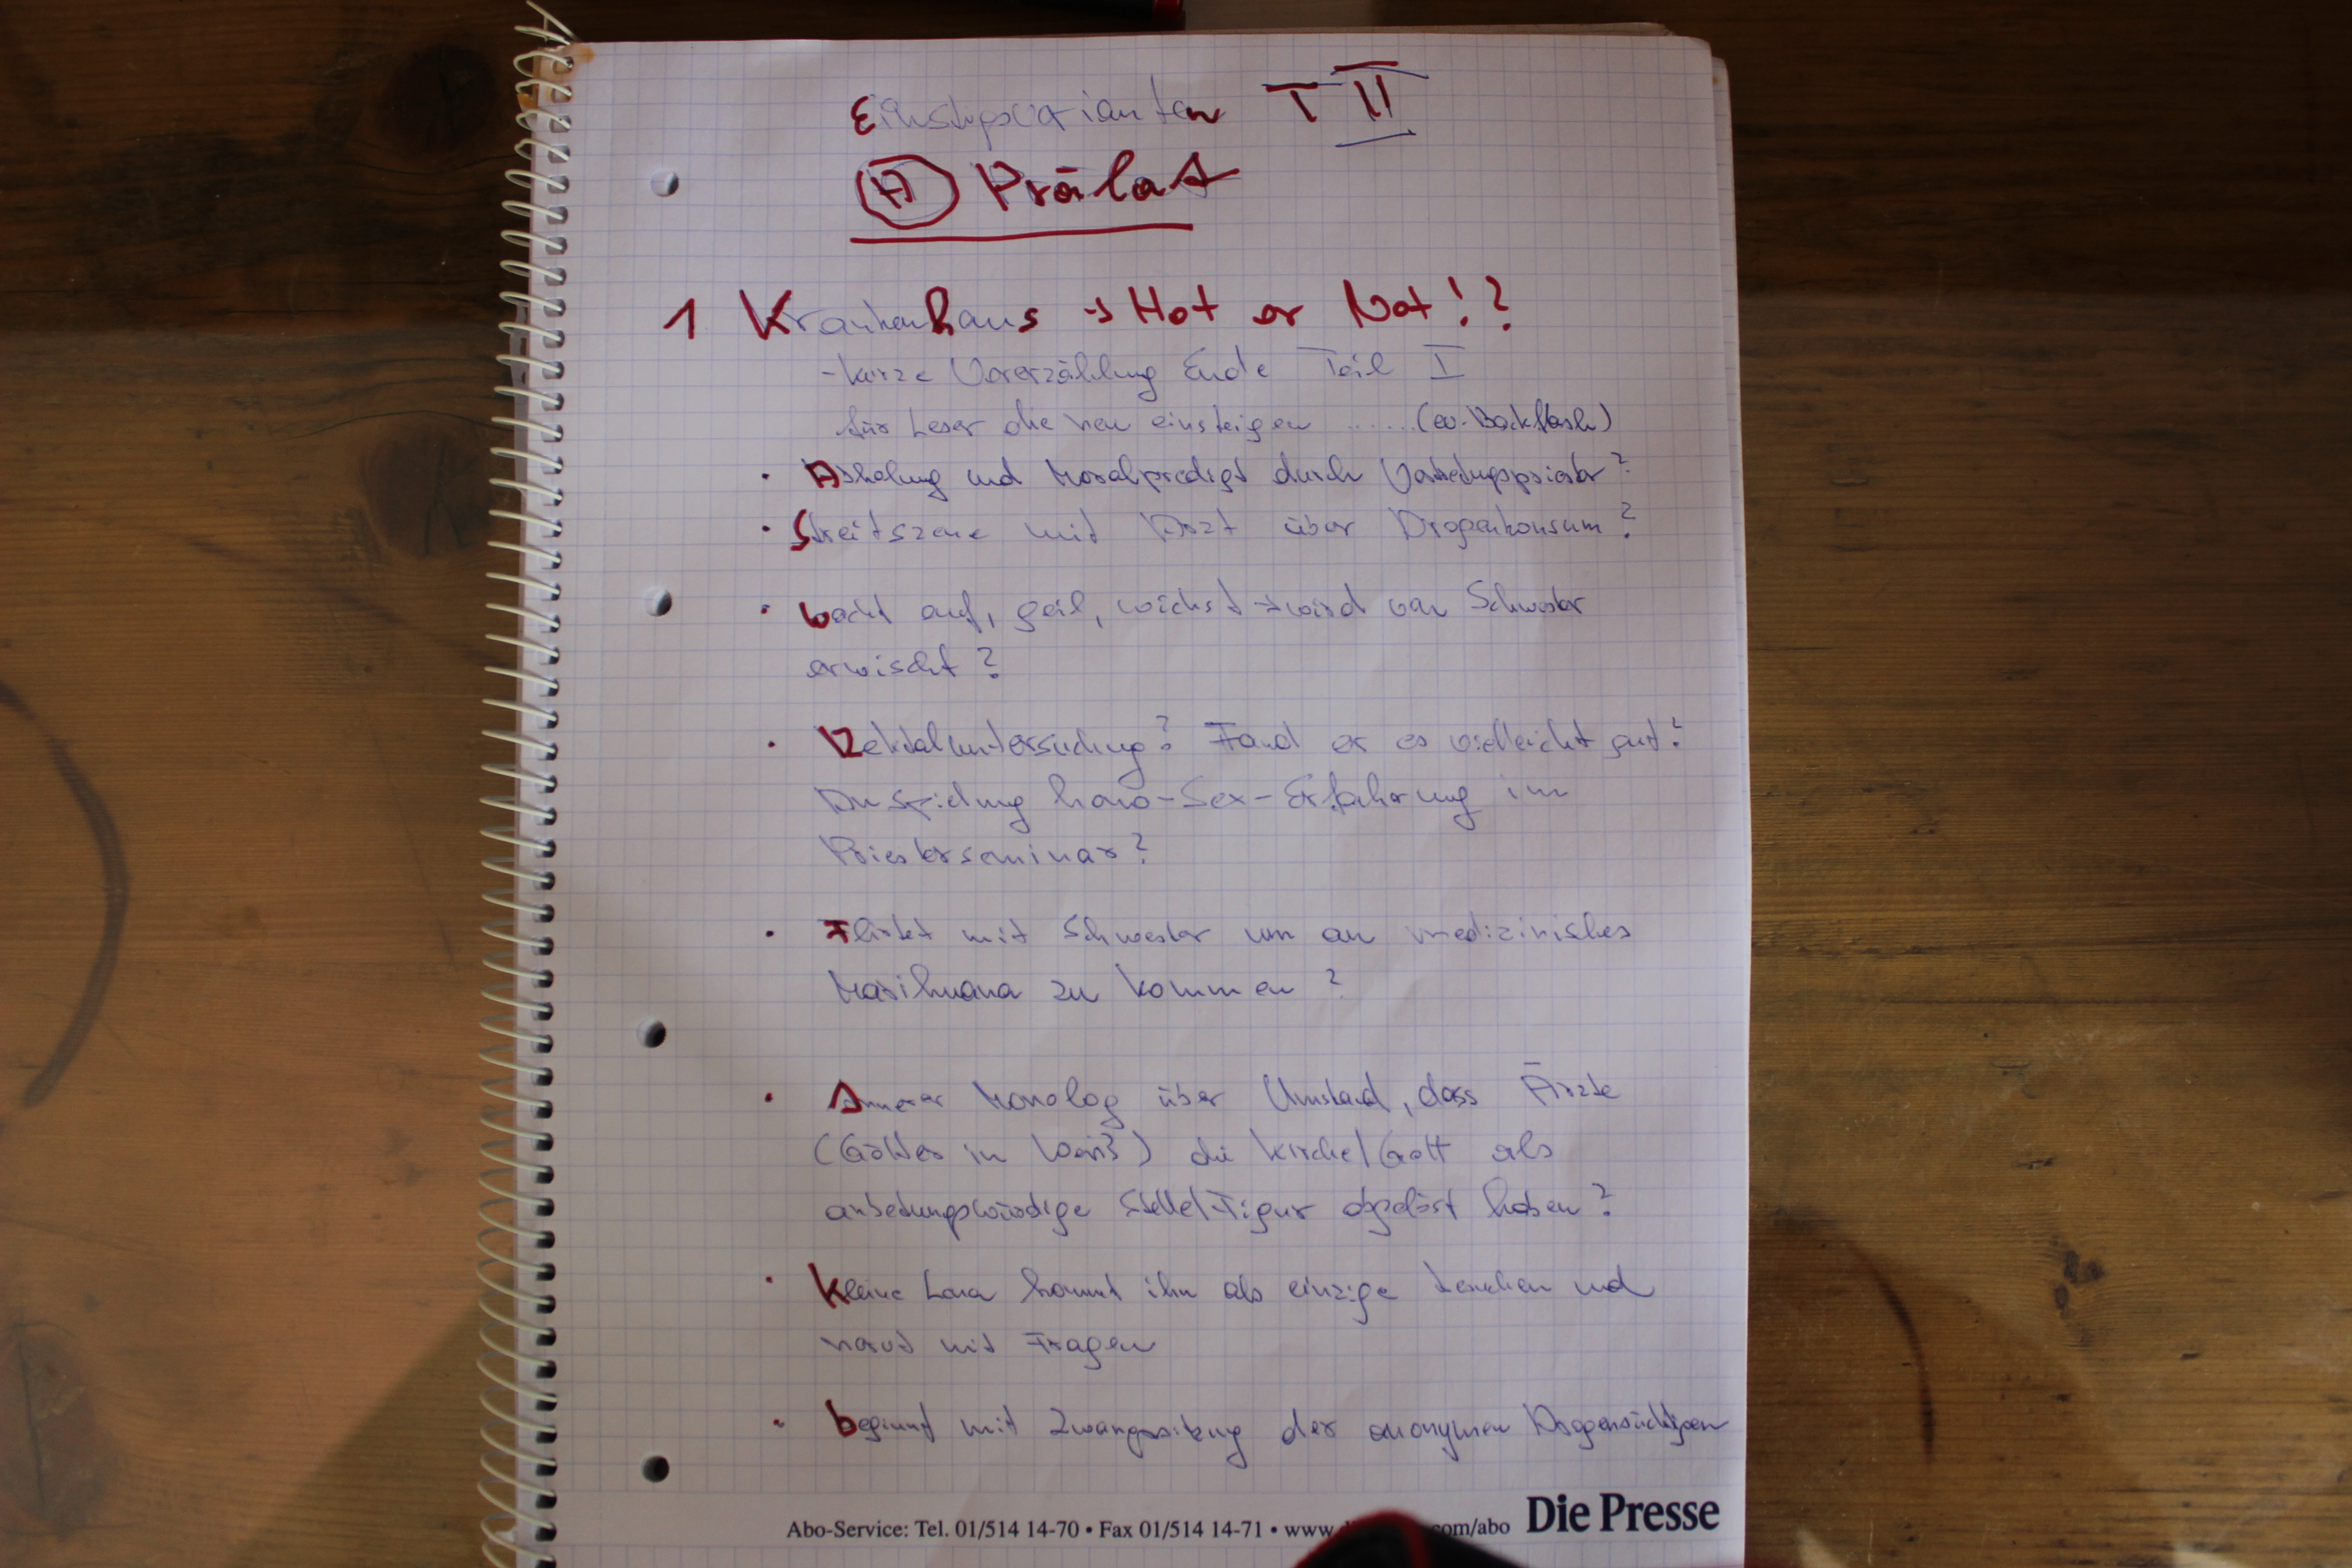 Einstiegsvarianten T II
A Prälat
1 Krankenhaus → Hot or Not!?
- kurze Vorerzählung Ende Teil I
für Leser die neu einsteigen ......(ev. Backflash)
· Abholung und Moralpredigt durch Vertretungspriester?
· Streitszene mit Arzt über Drogenkonsum?
· wacht auf, geil, wichst → wird von Schwester
erwischt?
· Rektaluntersuchung? Fand er es vielleicht gut?
Anspielung homo-Sex-Erfahrung im
Priesterseminar?
· Flirtet mit Schwester um an medizinisches
Marihuana zu kommen?
· Innerer Monolog über Umstand, dass Ärzte
(Götter in Weiß) die Kirche/Gott als
anbetungswürdige Stelle/Figur abgelöst haben?
· Kleine Lara kommt ihn als einzige besuchen und
nervt mit Fragen
· beginnt mit Zwangssitzung der anonymen Drogensüchtigen
Abo-Service: Tel. 01/514 14-70 • Fax 01/514 14-71 • www.d com/abo Die Presse